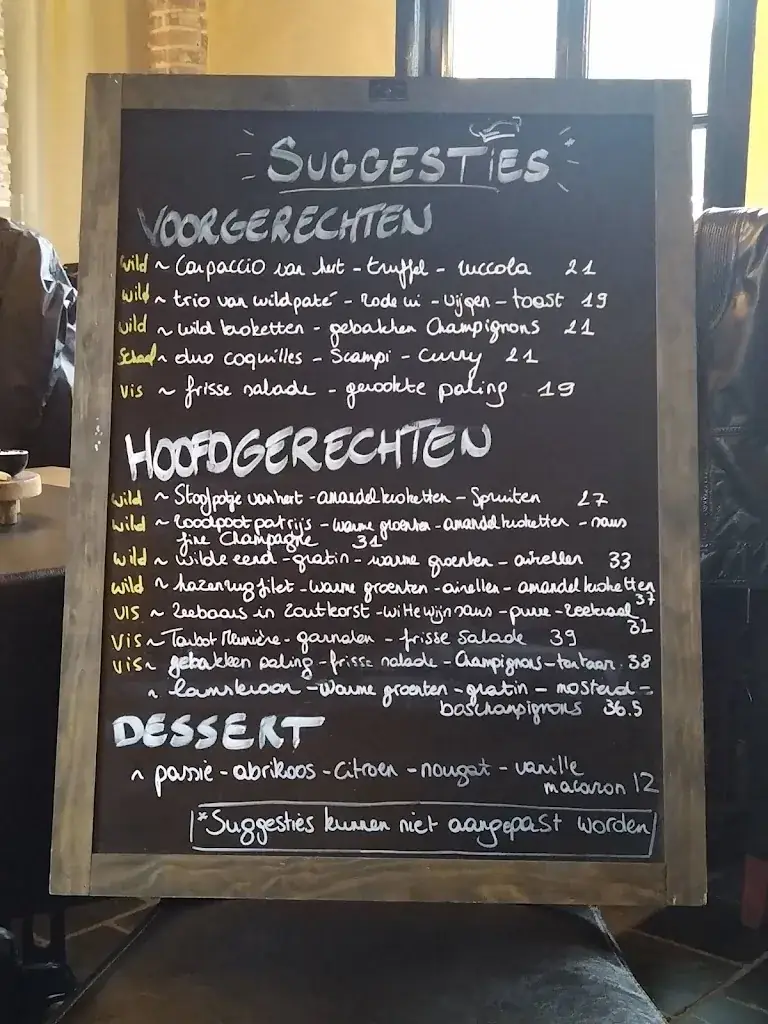 SUGGESTIES
VOORGERECHTEN
Wild ~ Carpaccio van hert - truffel - ruccola 21
Wild ~ trio van wildpaté - rode ui - vijgen - toast 19
Wild ~ wild kroketten - gebakken Champignons 21
Schaal ~ duo coquilles - Scampi - curry 21
Vis ~ frisse salade - gerookte paling 19
HOOFDGERECHTEN
Wild ~ Stoofpotje van hert - amandelkroketten - Spruiten 27
Wild ~ roodpoot patrijs - warme groenten - amandelkroketten - saus
fine Champagne 31
Wild ~ wilde eend - gratin - warme groenten - airellen 33
Wild ~ hazenrugfilet - warme groenten - airellen - amandelkroketten
37
Vis ~ Zeebaars in Zoutkorst - witte wijnsaus - puree - zeekraal
32
Vis ~ Tarbot Meunière - garnalen - frisse Salade 39
Vis ~ gebakken paling - frisse salade - Champignons - tartaar 38
~ lamskroon - warme groenten - gratin - mosterd -
boschampignons 36.5
DESSERT
~ passie - abrikoos - Citroen - nougat - vanille
macaron 12
*Suggesties kunnen niet aangepast worden